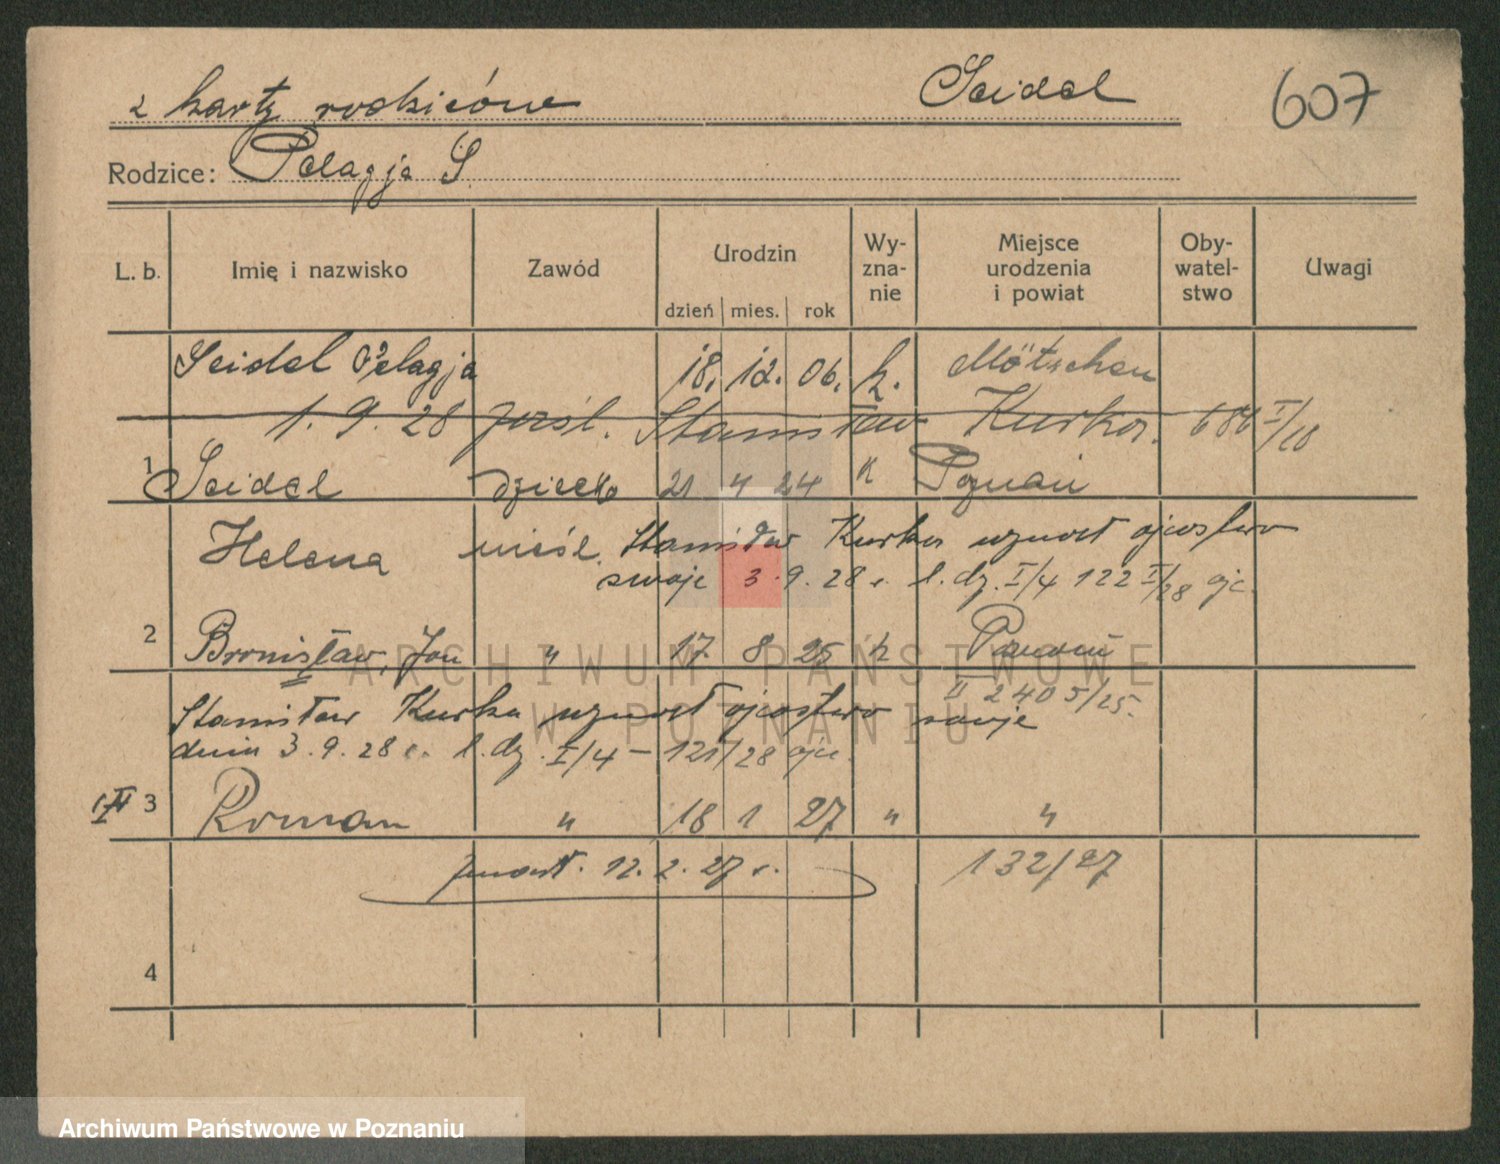 z karty rodziców Seidel 607
Rodzice: Pelagja S.
L. b. Imię i nazwisko Zawód Urodzin Wy-zna-nie Miejsce urodzenia i powiat Oby-watel-stwo Uwagi
dzień mies. rok
Seidel Pelagja 18. 12. 06. k. Mötschen
1. 9. 28 pośl. Stanisław Kurka. 686 I/28
1 Seidel dziecko 21 4 24 k Poznań
Helena nieśl. Stanisław Kurka uznał ojcostwo
swoje 3. 9. 28 r. l. dz. I/4 122 I/28 ojc.
2 Bronisław, Jan " 17. 8 25 k Poznań
II 2405/25.
Stanisław Kurka uznał ojcostwo swoje
dnia 3. 9. 28 r. l. dz. I/4 – 121/28 ojc.
3 Roman " 18 1 27 " "
zmarł. 12. 2. 27 r. 132/27
4
ARCHIWUM PAŃSTWOWE
W POZNANIU
Archiwum Państwowe w Poznaniu